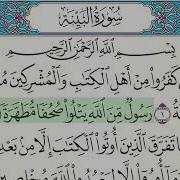 سُورَةُ البَيِّنَةِ
بِسْمِ اللَّهِ الرَّحْمَٰنِ الرَّحِيمِ
كَفَرُوا مِنْ أَهْلِ الْكِتَٰبِ وَالْمُشْرِكِينَ
١ رَسُولٌ مِّنَ اللَّهِ يَتْلُوا صُحُفًا مُّطَهَّرَةً
تَفَرَّقَ الَّذِينَ أُوتُوا الْكِتَٰبَ إِلَّا مِن بَعْدِ